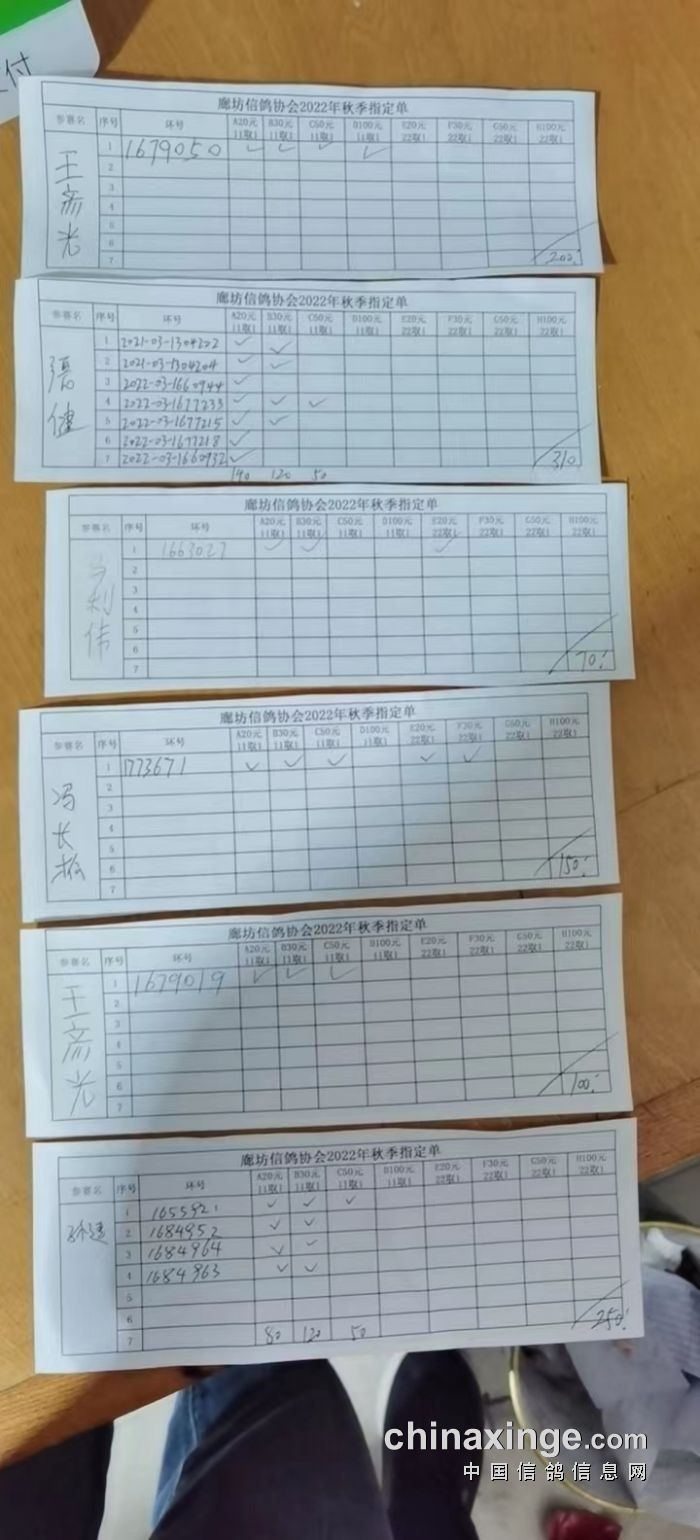 付
廊坊信鸽协会2022年秋季指定单
参赛名 序号 环号 A20元11取1 B30元11取1 C50元11取1 D100元11取1 E20元22取1 F30元22取1 G50元22取1 H100元22取1
王斋光 1 1679050 ✓ ✓ ✓ ✓
2
3
4
5
6
7 200
廊坊信鸽协会2022年秋季指定单
参赛名 序号 环号 A20元11取1 B30元11取1 C50元11取1 D100元11取1 E20元22取1 F30元22取1 G50元22取1 H100元22取1
1 2021-03-1304202 ✓ ✓
健 2 2021-03-1304204 ✓ ✓
3 2022-03-1660944 ✓
4 2022-03-1677233 ✓ ✓ ✓
5 2022-03-1677215 ✓ ✓
6 2022-03-1677218 ✓
7 2022-03-1660932 ✓ 310
190 120 50
廊坊信鸽协会2022年秋季指定单
参赛名 序号 环号 A20元11取1 B30元11取1 C50元11取1 D100元11取1 E20元22取1 F30元22取1 G50元22取1 H100元22取1
马利伟 1 1663027 ✓ ✓ ✓
2
3
4
5
6
7 70
廊坊信鸽协会2022年秋季指定单
参赛名 序号 环号 A20元11取1 B30元11取1 C50元11取1 D100元11取1 E20元22取1 F30元22取1 G50元22取1 H100元22取1
冯长 1 1773671 ✓ ✓ ✓ ✓ ✓
2
3
4
5
6
7 150
廊坊信鸽协会2022年秋季指定单
参赛名 序号 环号 A20元11取1 B30元11取1 C50元11取1 D100元11取1 E20元22取1 F30元22取1 G50元22取1 H100元22取1
王斋光 1 1679019 ✓ ✓ ✓
2
3
4
5
6
7 100
廊坊信鸽协会2022年秋季指定单
参赛名 序号 环号 A20元11取1 B30元11取1 C50元11取1 D100元11取1 E20元22取1 F30元22取1 G50元22取1 H100元22取1
1 1655921 ✓ ✓ ✓
2 1684952 ✓ ✓
3 1684964 ✓ ✓
4 1684963 ✓ ✓
5
6
7 80 120 50 250
chinaxinge.com
中国信鸽信息网